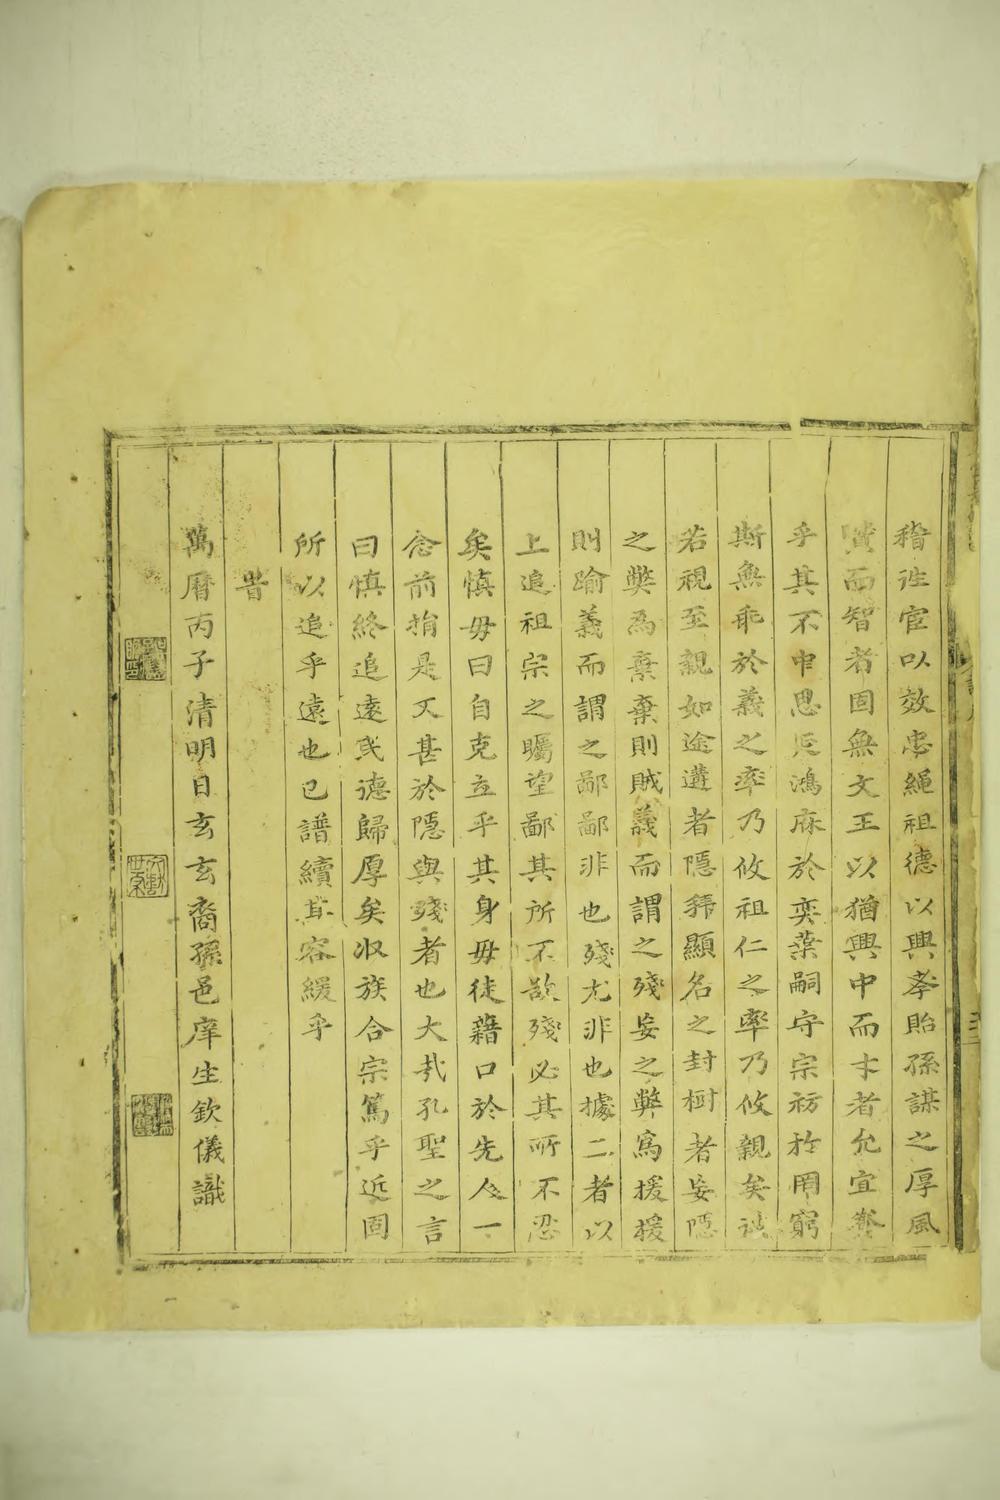 稽诖宦以效忠繩祖德以興孝貽孫謀之厚風
實而智者固無文王以猶興中而才者允宜奮
乎其不申思逞鴻庥於奕葉嗣守宗祊於罔窮
斯無乖於義之率乃攸祖仁之率乃攸親矣
若視至親如途遘者隱拜顯名之封樹者妄隱
之弊為棄棄則賊義而謂之殘妄之弊寫援援
則踰義而謂之鄙鄙非也殘尤非也據二者以
上追祖宗之矚望鄙其所不欲殘必其所不忍
矣慎毋曰自克立乎其身毋徒藉口於先人一
念前捐是又甚於隱與殘者也大哉孔聖之言
曰慎終追遠民德歸厚矣収族合宗篤乎近固
所以追乎遠也已譜續其容緩乎
旹
萬曆丙子清明日玄玄裔孫邑庠生欽儀識